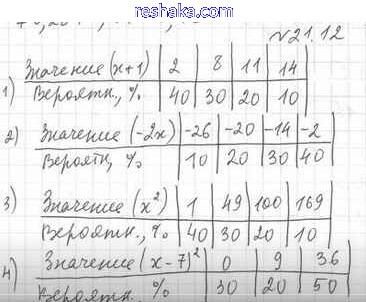 reshaka.com
№21.12
1) Значение (x+1) | 2 | 8 | 11 | 14
Вероятн., % | 40 | 30 | 20 | 10
2) Значение (-2x) | -26 | -20 | -14 | -2
Вероятн, % | 10 | 20 | 30 | 40
3) Значение (x²) | 1 | 49 | 100 | 169
Вероятн., % | 40 | 30 | 20 | 10
4) Значение (x-7)² | 0 | 9 | 36
Вероятн. % | 30 | 20 | 50